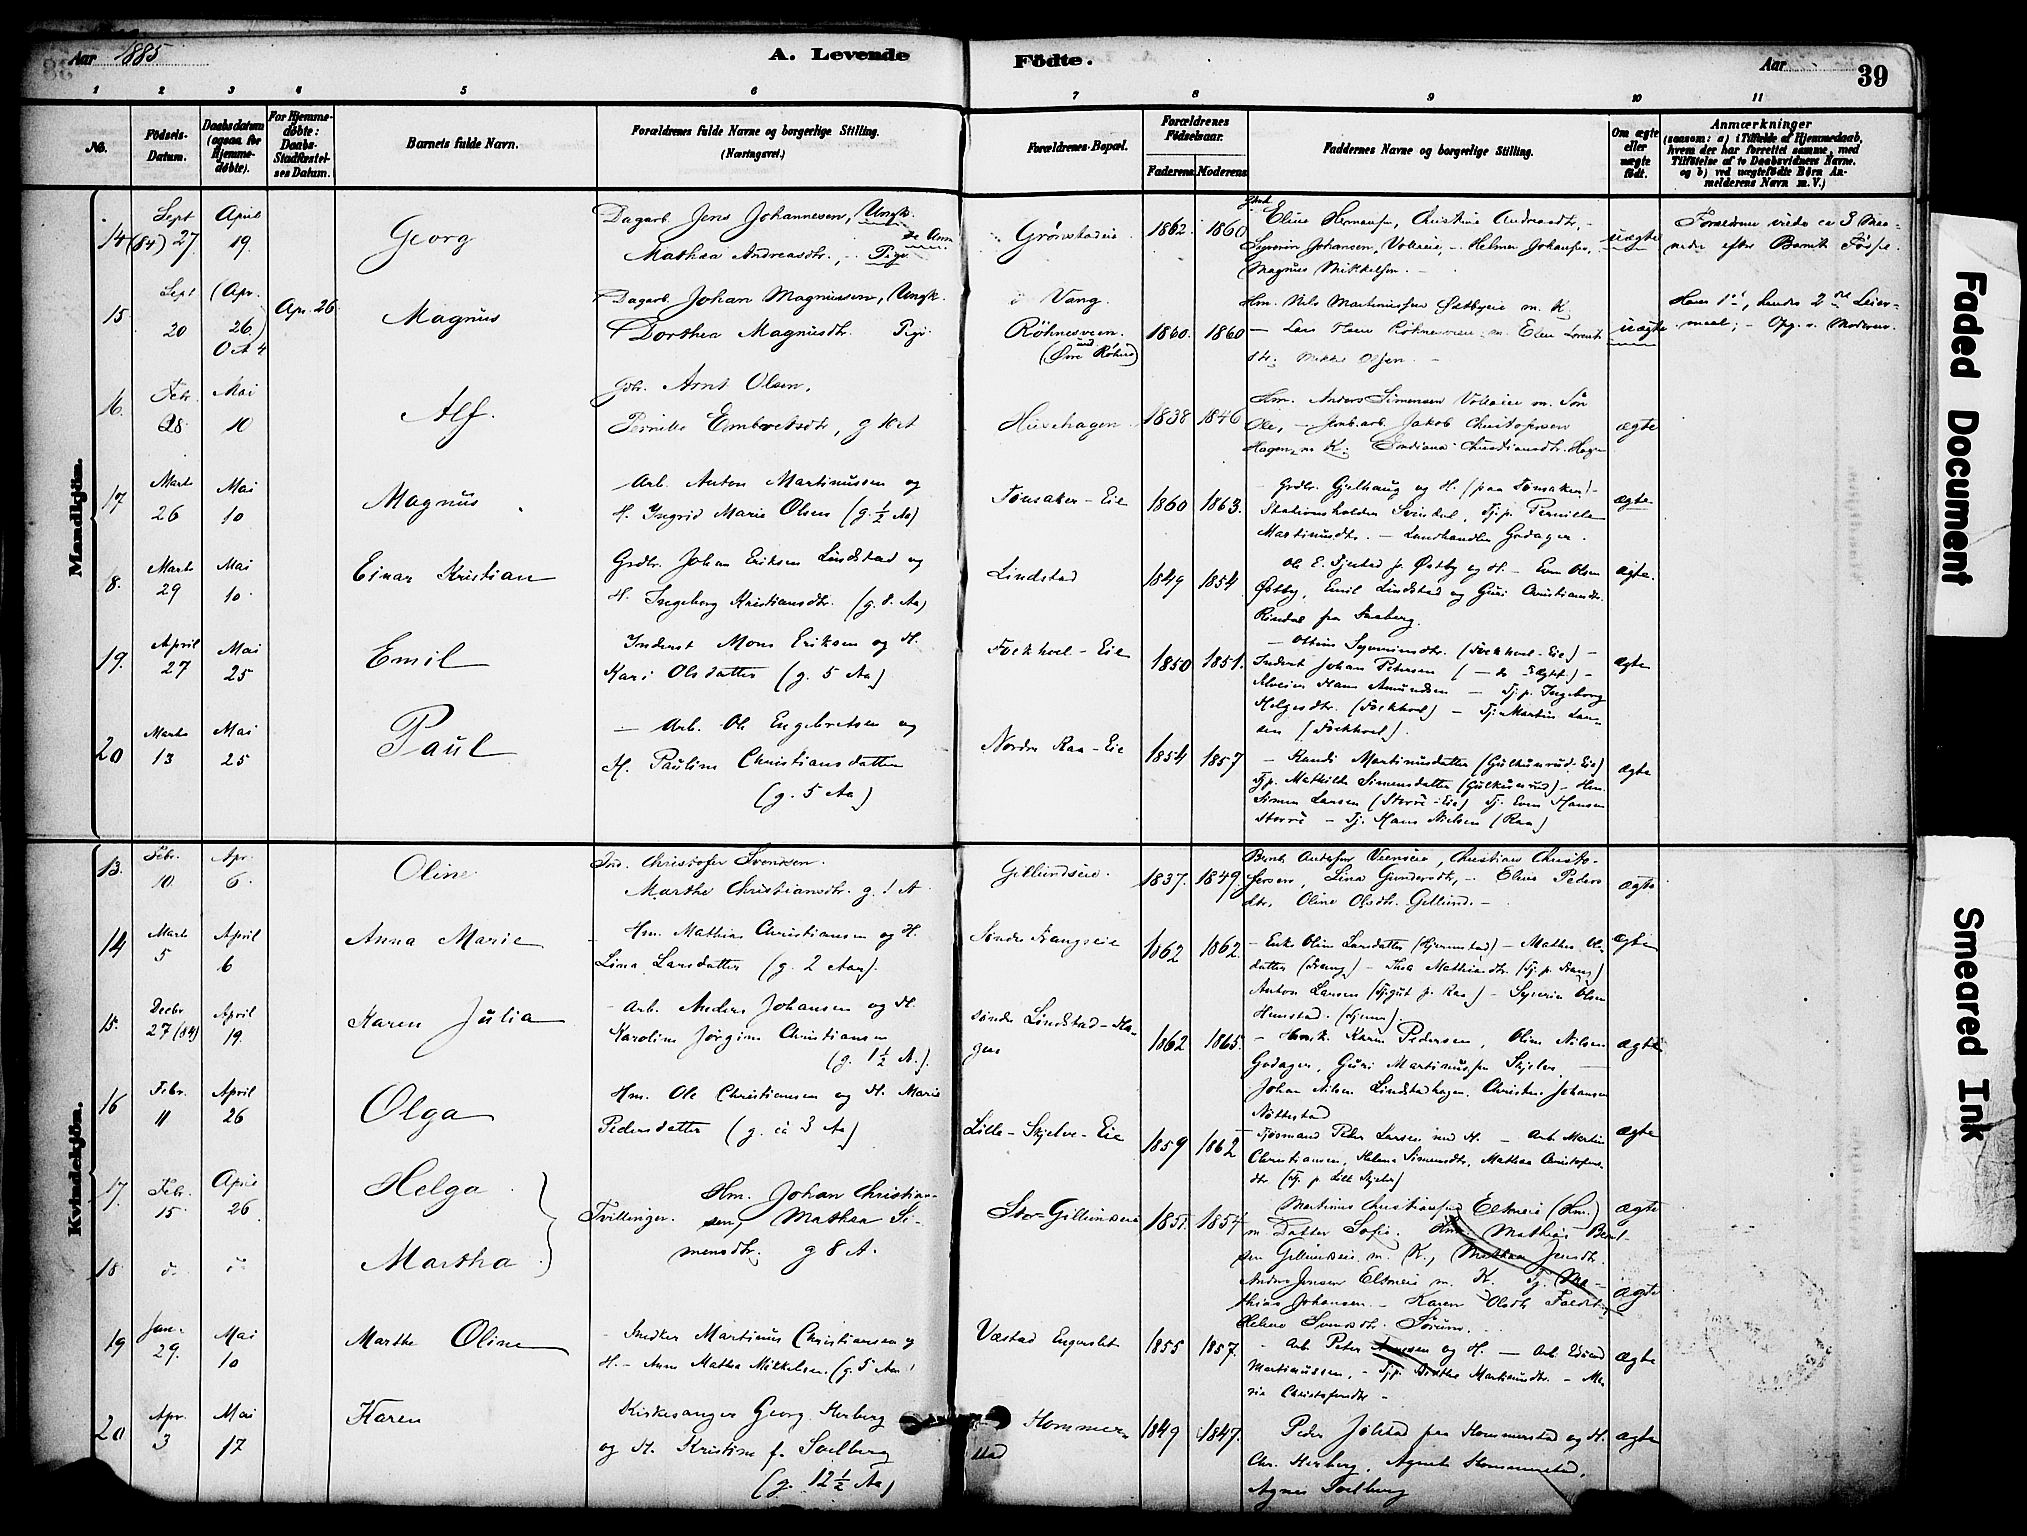 Aar 1885
A. Levende
Födte.
Aar
39
1 2 3 4 5 6 7 8 9 10 11
No.
Födsels-
Datum.
Daabsdatum
(ogsaa for
Hjemme-
døbte).
For Hjemme-
døbte:
Daabs-
Stadfæstel-
ses Datum.
Barnets fulde Navn.
Forældrenes fulde Navne og borgerlige Stilling.
(Næringsvei.)
Forældrenes Bopæl.
Forældrenes
Födselsaar.
Faderens
Moderens
Faddernes Navne og borgerlige Stilling.
Om ægte
eller
uægte
født.
Anmærkninger
(saasom: a) i Tilfælde af Hjemmedaab,
hvem der har forrettet samme, med
Tilføielse af to Daabsvidners Navne,
og b) ved uægtefødte Børn An-
melderens Navn m. V.)
Mandkjön.
14 Sept (84) 27 April 19. Georg
Dagarb. Jens Johannesen, Ungk.
Mathea Andreasdtr., Pige
Grønstadeie 1862. 1860
Eline Hermansen, Christine Andreasdtr, -
Syverin Johansen, Volleie, - Helmer Johansen,
Magnus Mikkelsen. -
uægte
Forældrene viede ca 3 Maa-
neder efter Barnets Fødsel.
15 Sept 20 (Apr. 26) Oct 4 Apr. 26 Magnus
Dagarb. Johan Magnussen, Ungk.
Dorthea Magnusdtr. Pige
i Vang.
Røhnesveen.
(Øvre Røhne)
1860. 1860
Hm. Nils Martinussen Østbyeie m. K.
- Lars Hansen
Mikkel Olsen. -
uægte
Hans 1ste, hendes 2det Leier-
maal; - Opg. v. Moderen.
16. Febr. 28 Mai 10 Alf.
Gbr. Arnt Olsen,
Pernille Embretsdtr, g
Husehagen 1838 1846
Hm. Anders Simensen Volleie m. Søn
Ole, - Jernb.arb. Jakob Christofersen
Hagen, m K. Christiansdtr. Hagen
ægte
17 Marts 26 Mai 10 Magnus
Arb. Anton Martinussen og
H. Ingrid Marie Olsen (g. ½ Aa)
Tønsaker-Eie 1860 1863.
- Grdbr. Gjelhaug og H. (paa Tønsaker) -
Stationsholder Svindal, Tj.p. Pernille
Martinusdtr. - Landhandler Godager.
ægte
18. Marts 29 Mai 10. Einar Kristian
Grdbr. Johan Eriksen Lindstad og
H. Ingeborg Kristiansdtr. (g. 8. Aa)
Lindstad 1849 1854
Ol. E. Tjustad fr. Østby og H. - Even Olsen
Østby, Emil Lindstad og Guri Christiansdtr.
Rindal fra Faaberg.
ægte.
19. April 27 Mai 25 Emil
Inderst Mons Eriksen og H.
Kari Olsdatter (g. 5 Aa)
Fockhoel-Eie 1850 1851.
- Syverinsdtr. (Fockhoel-Eie) -
Inderst Johan Petersen
Hans Amundsen - Tj.p. Ingeborg
Helgesdtr. (Fockhoel) - Tj. Martin Lar-
sen (Fockhoel).
ægte
20 Marts 13 Mai 25 Paul
- Arb. Ole Engebretsen og
H. Pauline Christiansdatter
(g. 5 Aa)
Nordre Raa-Eie 1854 1857
- Randi Martinusdatter (Gulkuserud-Eie)
Tj.p. Mathilde Simensdatter (Gulkuserud) - Hm.
Simen Larsen (Storre-Eie) Tj. Even Hansen
Storre - Tj. Hans Nielsen (Raa)
ægte
Kvindekjön.
13. Febr. 10. Apr. 6 Oline
Ind. Christofer Svendsen.
Marthe Christiansdtr. g. 1 A.
Gillundseie. 1837. 1849
Bernt Andersen Veenseie, Christian Christo-
fersen, Lina Gundersdtr, - Eline Peders
dtr, Oline Olsdtr. Gillund. -
ægte
14 Marts 5 April 6 Anna Marie
Hm. Mathias Christiansen og H.
Lina Larsdatter (g. 2 Aar).
Søndre Frangseie 1862 1862.
- Enke Oline Larsdatter (Hjermstad) - Mathea Ols-
datter (Frang) - Thea Mathisdtr. (Tj. p. Frang)
Anton Larsen (Tj.gut p. Raa) - Syverin Olsen
Hemstad
ægte
15. Decbr 27 (84) April 19. Karen Julia
- Arb. Anders Johansen og H.
Karoline Jørgine Christiansen
(g. 1½ A.)
søndre Lindstad-Ha-
gen
1862 1865.
- Karen Pedersen, Oline Nilsen
Godager, Guri Martinussen Skjelve, -
Johan Nilsen Lindstadhagen, Christian Johansen
Nøttestad
ægte
16 Febr. 11 April 26 Olga
Hm. Ole Christiansen og H. Marie
Pedersdatter (g. ca 3 Aa)
Lille-Skjelve-Eie 1859 1862
- Peder Larsen med H. - Arb. Martin
Christiansen, Helene Simensdtr, Mathea Christofers-
dtr (Tj. p. Lille Skjelve)
ægte
17. Febr. 15 April 26 Helga
18. d. d. Martha
Tvillinger.
Hm. Johan Christian-
sen, Mathea Si-
mensdtr. g 8 A.
Sto-Gillundseie 1851. 1854
Martinus Christiansen Elsmeie (Hm.)
m. Datter Sofie. Hm. Mathias Bent-
sen Gillundseie m. K, Mathea Jensdtr.
Anders Jensen Elsmeie m. K. Tj. Ma-
thias Johansen. - Karen Olsdtr
Helene Svendsdtr. Sørum.
ægte
ægte
19 Jan. 29. Mai 10 Marthe Oline
- Snedker Martinus Christiansen og
H. - Anne Mathea Mikkelsen. (g. 5 Aar)
Væstad Engerslet 1855 1857.
- Arb. Peter og H. - Arb. Edvard
Martinussen, - Tj.p. Dorthea Martinusdtr. - Ma-
rie Christofersdtr -
ægte
20 Apr. 3 Mai 17 Karen
Kirkesanger Georg Herberg
og H. Kristine f. Solberg
(g. 12½ Aa)
Hommer-
stad
1849 1847.
Peder Jølstad fra Hommerstad og H.
Chr. Herberg, Agnete Hommerstad,
Agnes Solberg
ægte
Faded Document
Smeared Ink